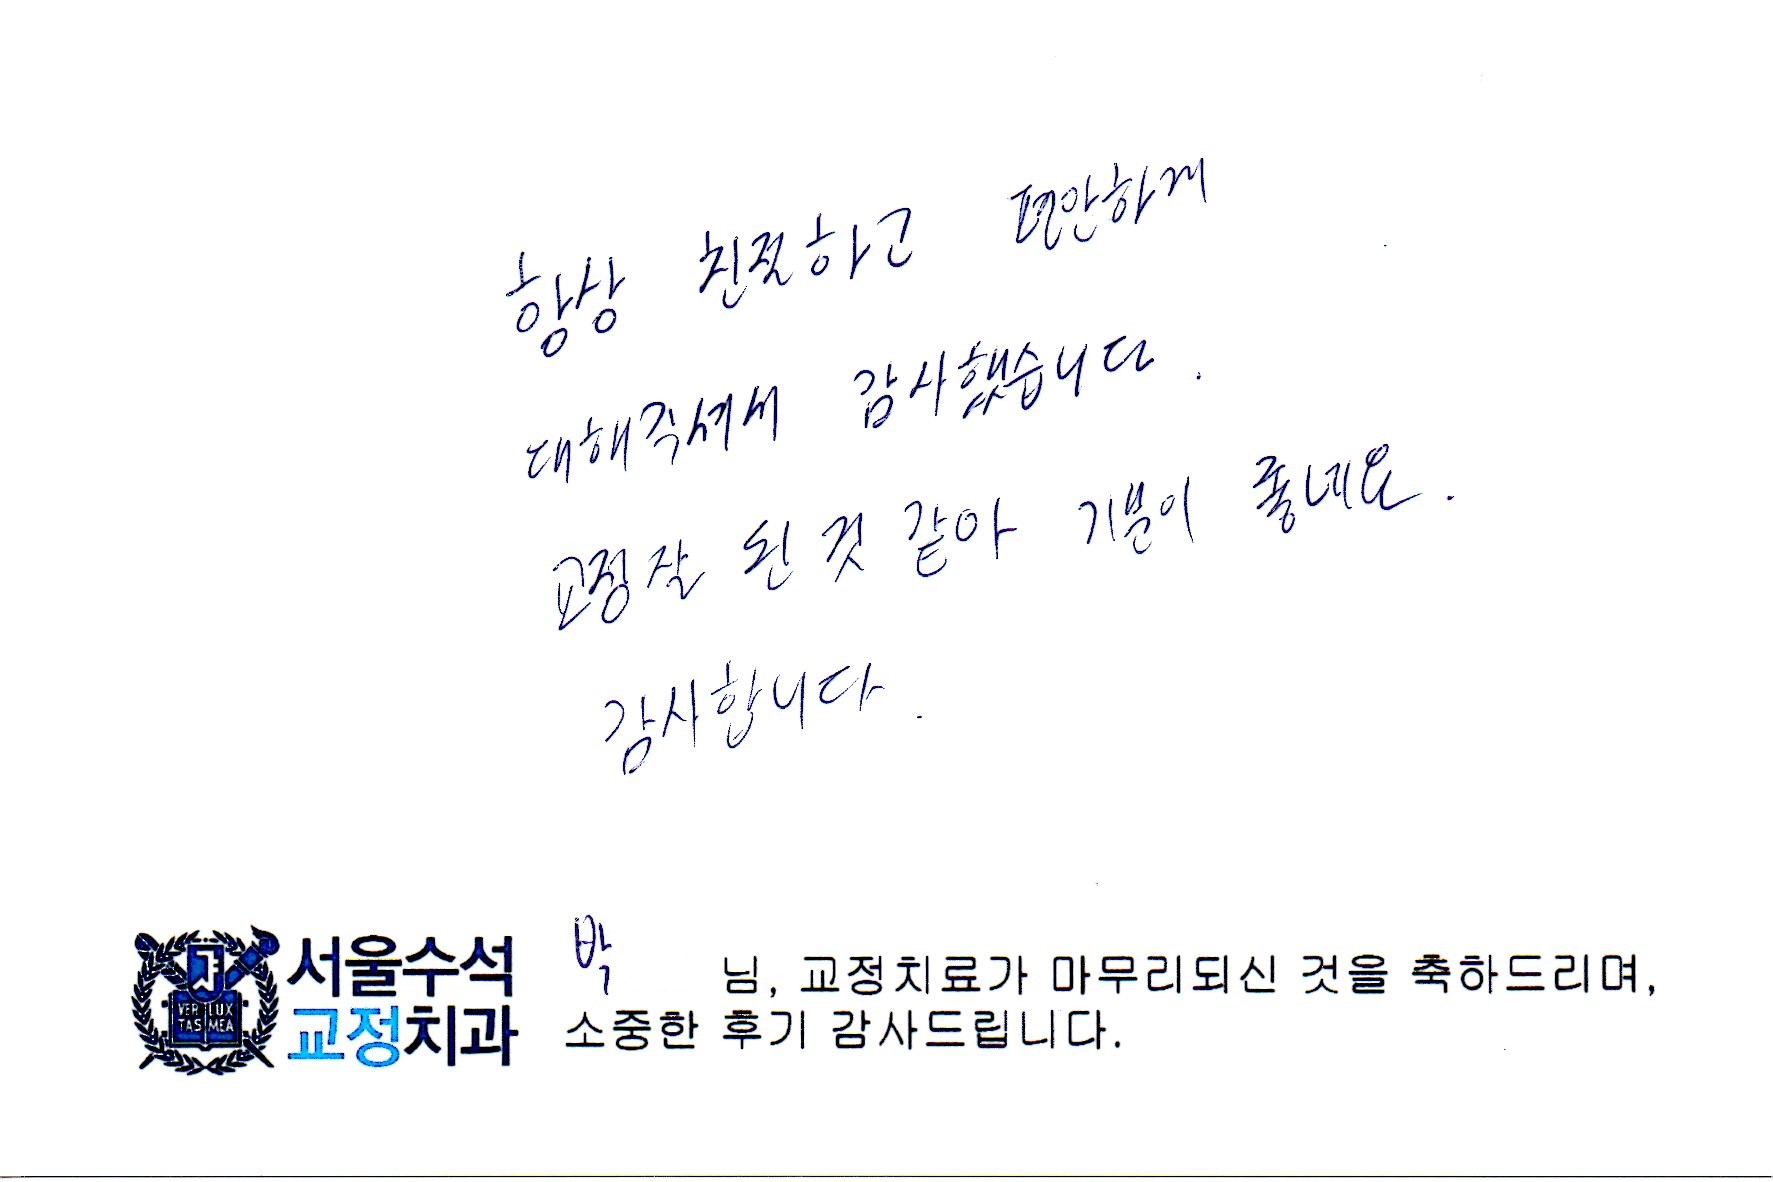 항상 친절하고 편안하게
대해주셔서 감사했습니다.
교정 잘 된 것 같아 기분이 좋네요.
감사합니다.
서울수석
교정치과
VERI LUX
TAS MEA
박 님, 교정치료가 마무리되신 것을 축하드리며,
소중한 후기 감사드립니다.